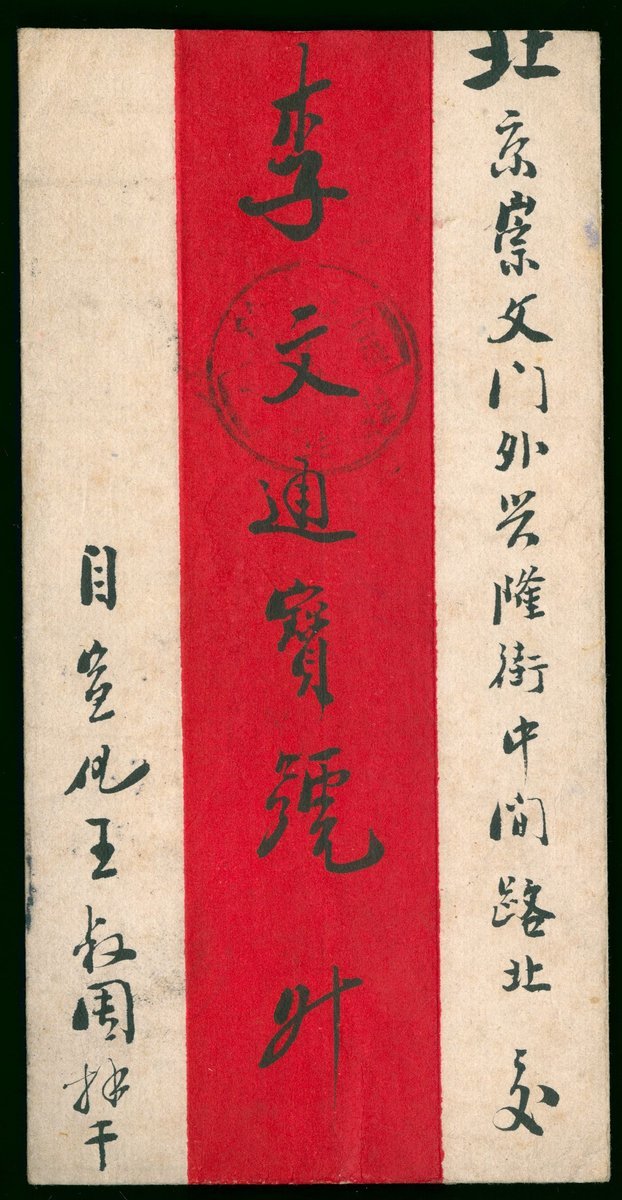 北京崇文门外兴隆街中间路北 交
李文通寶號 升
自宣化王叔周拜干